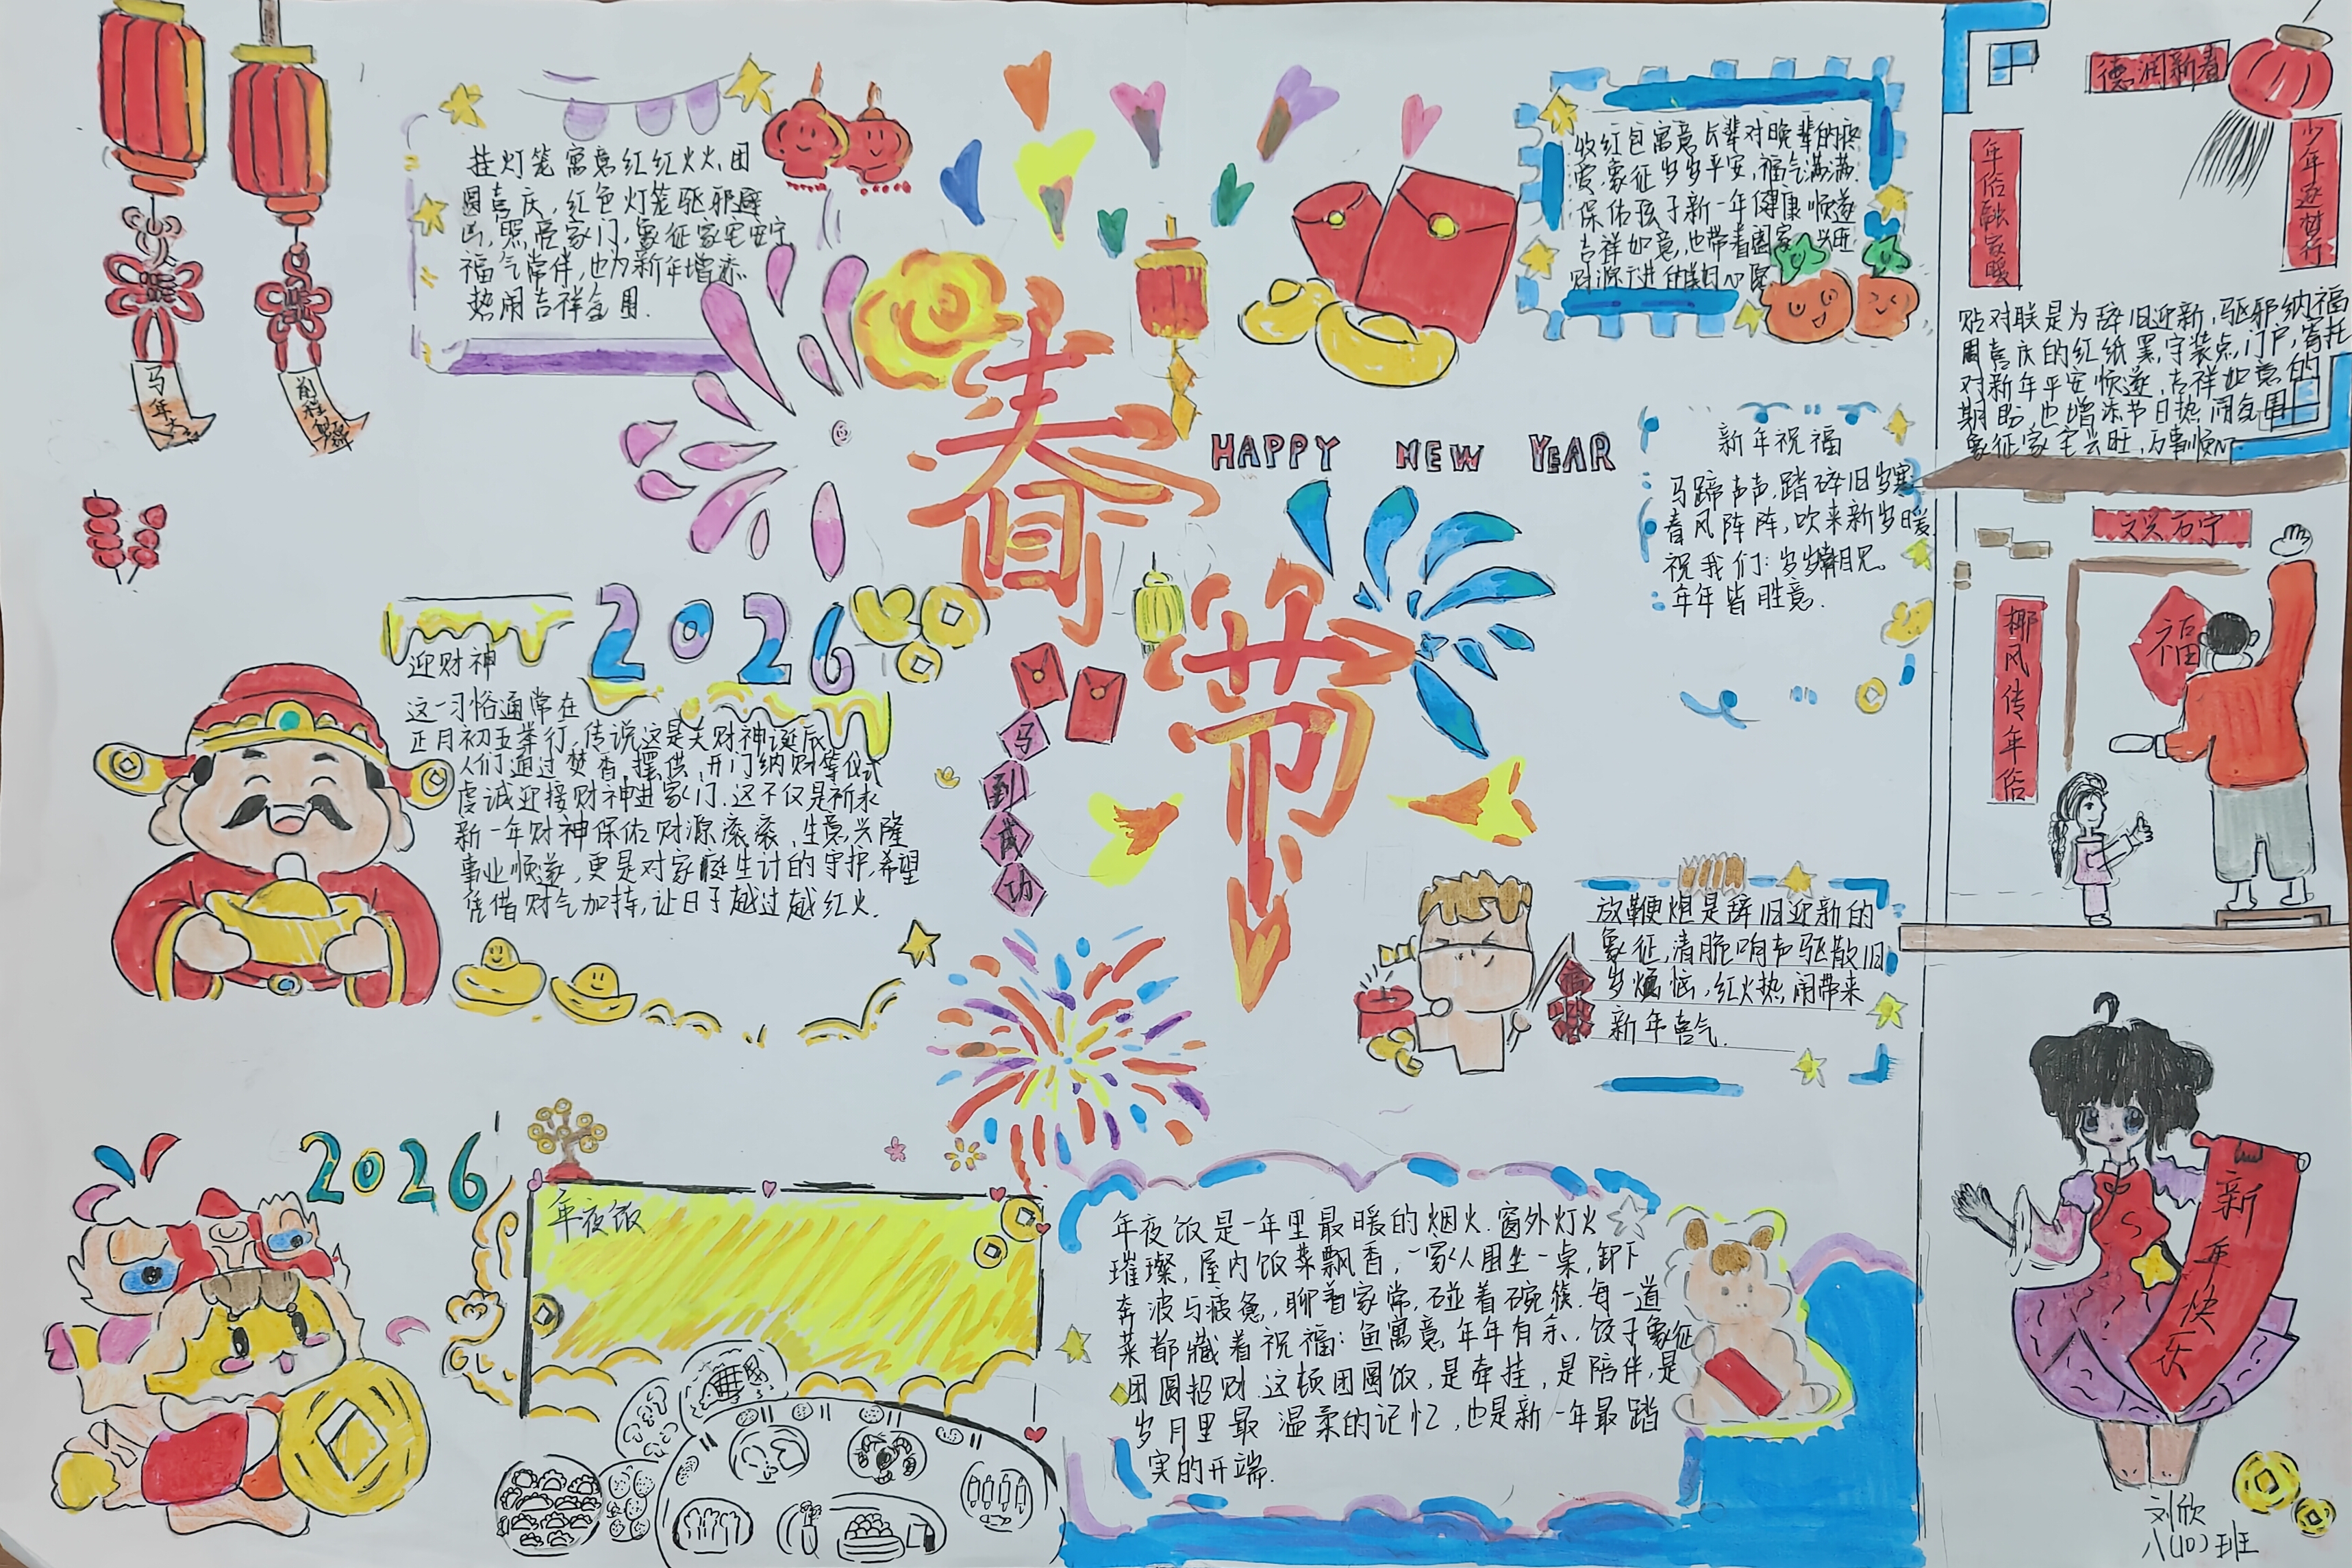 马年大吉
前程似锦
挂灯笼寓意红红火火,团
圆喜庆,红色灯笼驱邪避
凶,照亮家门,象征家宅安宁
福气常伴,也为新年增添
热闹吉祥氛围.
收红包寓意长辈对晚辈的疼
爱,象征岁岁平安,福气满满.
保佑孩子新一年健康顺遂
吉祥如意,也带着国家兴旺
财源广进的美好心愿
德润新春
年俗融家暖
少年逐梦行
贴对联是为辞旧迎新,驱邪纳福
用喜庆的红纸黑字装点门户,寄托
对新年平安顺遂,吉祥如意的
期盼,也增添节日热闹氛围
象征家宅兴旺,万事顺心.
春节
HAPPY NEW YEAR
新年祝福
马蹄声声,踏碎旧岁寒
春风阵阵,吹来新岁暖.
祝我们:岁岁常相见。
年年皆胜意.
文兴万宁
椰风传年俗
福
2026
迎财神
这一习俗通常在
正月初五举行,传说这是关财神诞辰
人们通过焚香,摆供,开门纳财等仪式
虔诚迎接财神进家门.这不仅是祈求
新一年财神保佑财源滚滚,生意兴隆
事业顺遂,更是对家庭生计的守护,希望
凭借财气加持,让日子越过越红火.
马到成功
放鞭炮是辞旧迎新的
象征,清脆响声驱散旧
岁烦恼,红火热闹带来
新年喜气.
2026
年夜饭
年夜饭是一年里最暖的烟火.窗外灯火
璀璨,屋内饭菜飘香,一家人围坐一桌,卸下
奔波与疲惫,聊着家常,碰着碗筷.每一道
菜都藏着祝福:鱼寓意年年有余,饺子象征
团圆招财.这顿团圆饭,是牵挂,是陪伴,是
岁月里最温柔的记忆,也是新一年最踏
实的开端.
新年快乐
刘欣
八(10)班